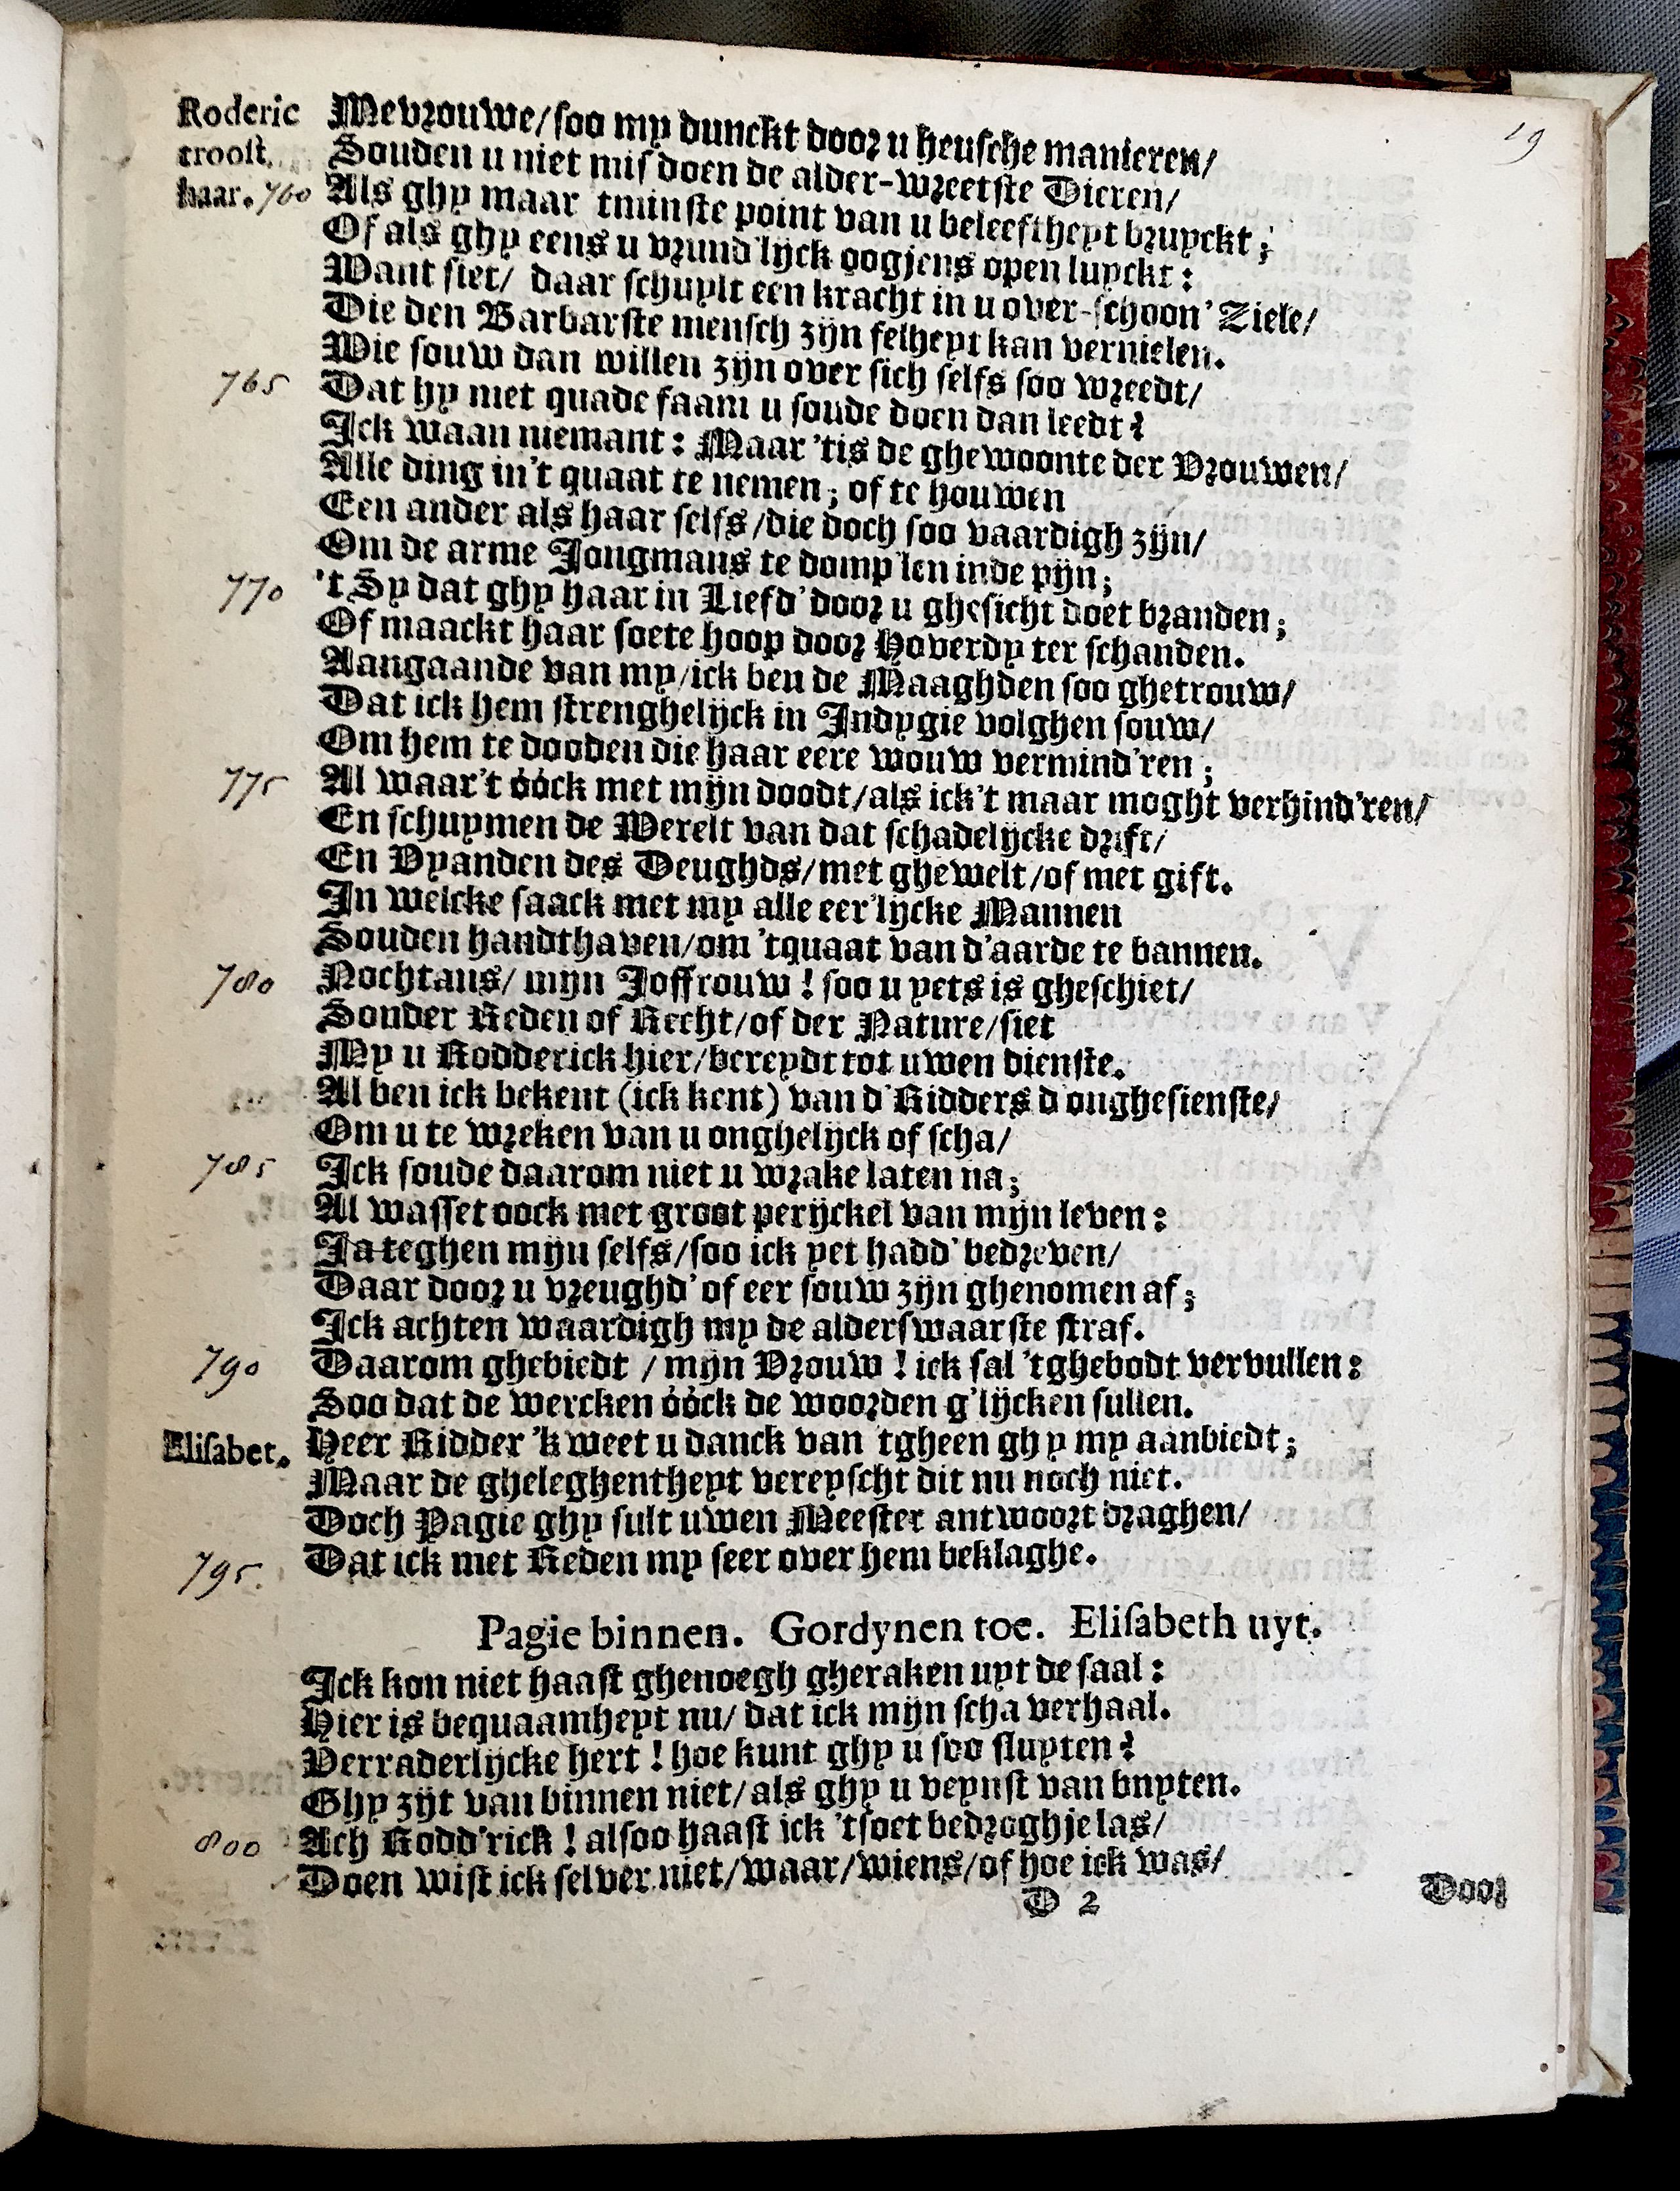 19
Roderic Mevrouwe/ soo my dunckt door u heusche manieren/
troost Souden u niet misdoen de alder-wreetste Dieren/
haar. 760 Als ghy maar tminste point van u beleeftheyt bruyckt;
Of als ghy eens u vrund'lijck oogjens open luyckt:
Want siet/ daar schuylt een kracht in u over-schoon' Ziele/
Die den Barbarste mensch zijn felheyt kan vernielen.
Wie souw dan willen zijn over sich selfs soo wreedt/
765 Dat hy met quade faam u soude doen dan leedt?
Ick waan niemant: Maar 'tis de ghewoonte der Vrouwen/
Alle ding in't quaat te nemen; of te houwen
Een ander als haar selfs/die doch soo vaardigh zijn/
Om de arme Jongmans te domp'len inde pijn;
770 't Sy dat ghy haar in Liefd' door u ghesicht doet branden;
Of maackt haar soete hoop door Hoverdy ter schanden.
Aangaande van my/ick ben de Maaghden soo ghetrouw/
Dat ick hem strenghelijck in Indygie volghen souw/
Om hem te dooden die haar eere wouw vermind'ren;
775 Al waar't óóck met mijn doodt/als ick't maar moght verhind'ren/
En schuymen de Werelt van dat schadelijcke drift/
En Vyanden des Deughds/met ghewelt/of met gift.
In welcke saack met my alle eer'lijcke Mannen
Souden handthaven/om 'tquaat van d'aarde te bannen.
780 Nochtans/ mijn Joffrouw! soo u yets is gheschiet/
Sonder Reden of Recht/of der Nature/siet
My u Rodderick hier/bereydt tot uwen dienste.
Al ben ick bekent (ick kent) van d'Ridders d'onghesienste/
Om u te wreken van u onghelijck of scha/
785 Ick soude daarom niet u wrake laten na;
Al wasset oock met groot perijckel van mijn leven:
Ja teghen mijn selfs/soo ick yet hadd' bedreven/
Daar door u vreughd' of eer souw zijn ghenomen af;
Ick achten waardigh my de alderswaarste straf.
790 Daarom ghebiedt / mijn Vrouw! ick sal 'tghebodt vervullen:
Soo dat de wercken óóck de woorden g'lijcken sullen.
Elisabet. Heer Ridder 'k weet u danck van tgheen ghy my aanbiedt;
Maar de gheleghentheyt vereyscht dit nu noch niet.
Doch Pagie ghy sult uwen Meester antwoort draghen/
795. Dat ick met Reden my seer over hem beklaghe.
Pagie binnen. Gordynen toe. Elisabeth uyt.
Ick kon niet haast ghenoegh gheraken uyt de saal:
Hier is bequaamheyt nu/ dat ick mijn scha verhaal.
Verraderlijcke hert! hoe kunt ghy u soo sluyten?
Ghy zijt van binnen niet/ als ghy u veynst van bnyten.
800 Ach Rodd'rick! alsoo haast ick 'tsoet bedroghje las/
Doen wist ick selver niet/waar/wiens/of hoe ick was/
D 2 Door